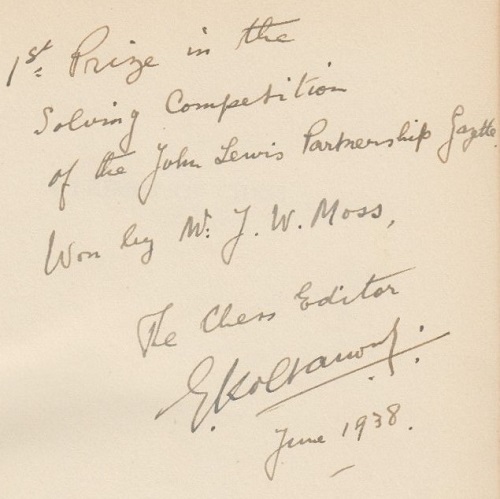 1st Prize in the
Solving Competition
of the John Lewis Partnership Gazette.
Won by Mr. J. W. Moss,
The Chess Editor
G. Koltanowski.
June 1938.